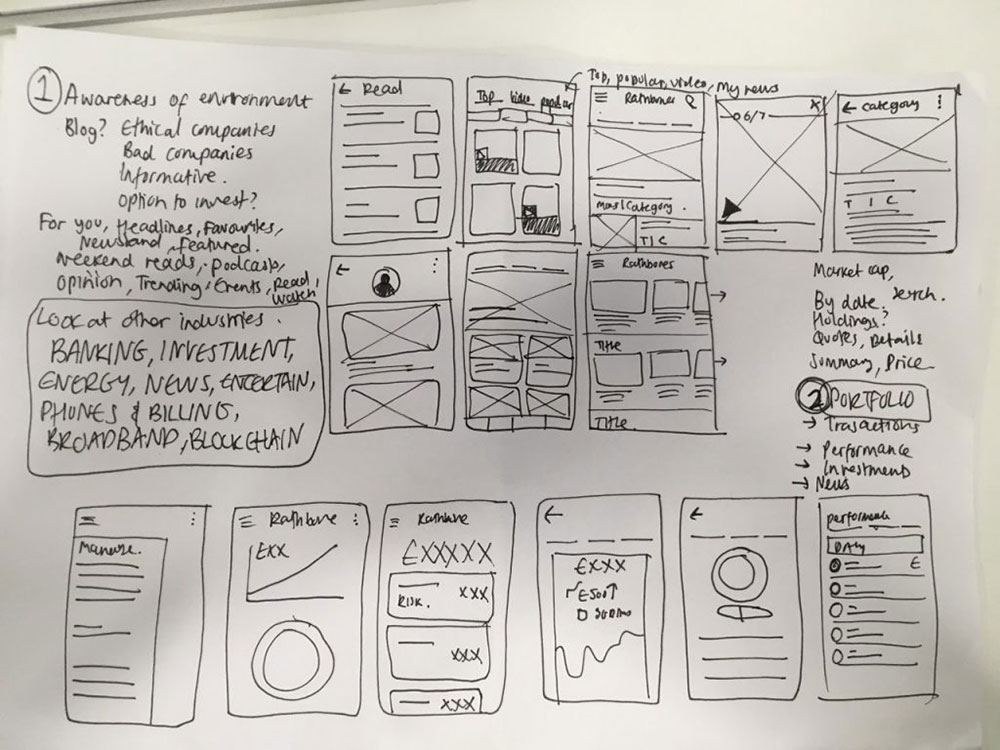 1 Awareness of environment
Blog? Ethical companies
Bad companies
Informative.
option to invest?
For you, Headlines, Favourites,
Newsband, featured.
Weekend reads, podcasts,
opinion, Trending, Events, Read,
Watch
Look at other industries.
BANKING, INVESTMENT,
ENERGY, NEWS, ENTERTAIN,
PHONES & BILLING,
BROADBAND, BLOCKCHAIN
← Read
Top, popular, video, My news
Top video popular
Rathbones
Category.
T I C
06/7 X
← Category
T I C
Rathbones
TITLE
TITLE.
Market cap,
By date. Search.
Holdings?
Quotes, Details
Summary, Price
2 PORTFOLIO
→ Trasactions
→ Performance
→ Investments
→ News
Manage.
Rathbone
£XX
Rathbone
£XXXXX
RISK. XXX
XXX
XXX
←
£XXX
£500↑
←
performance
DAily
£